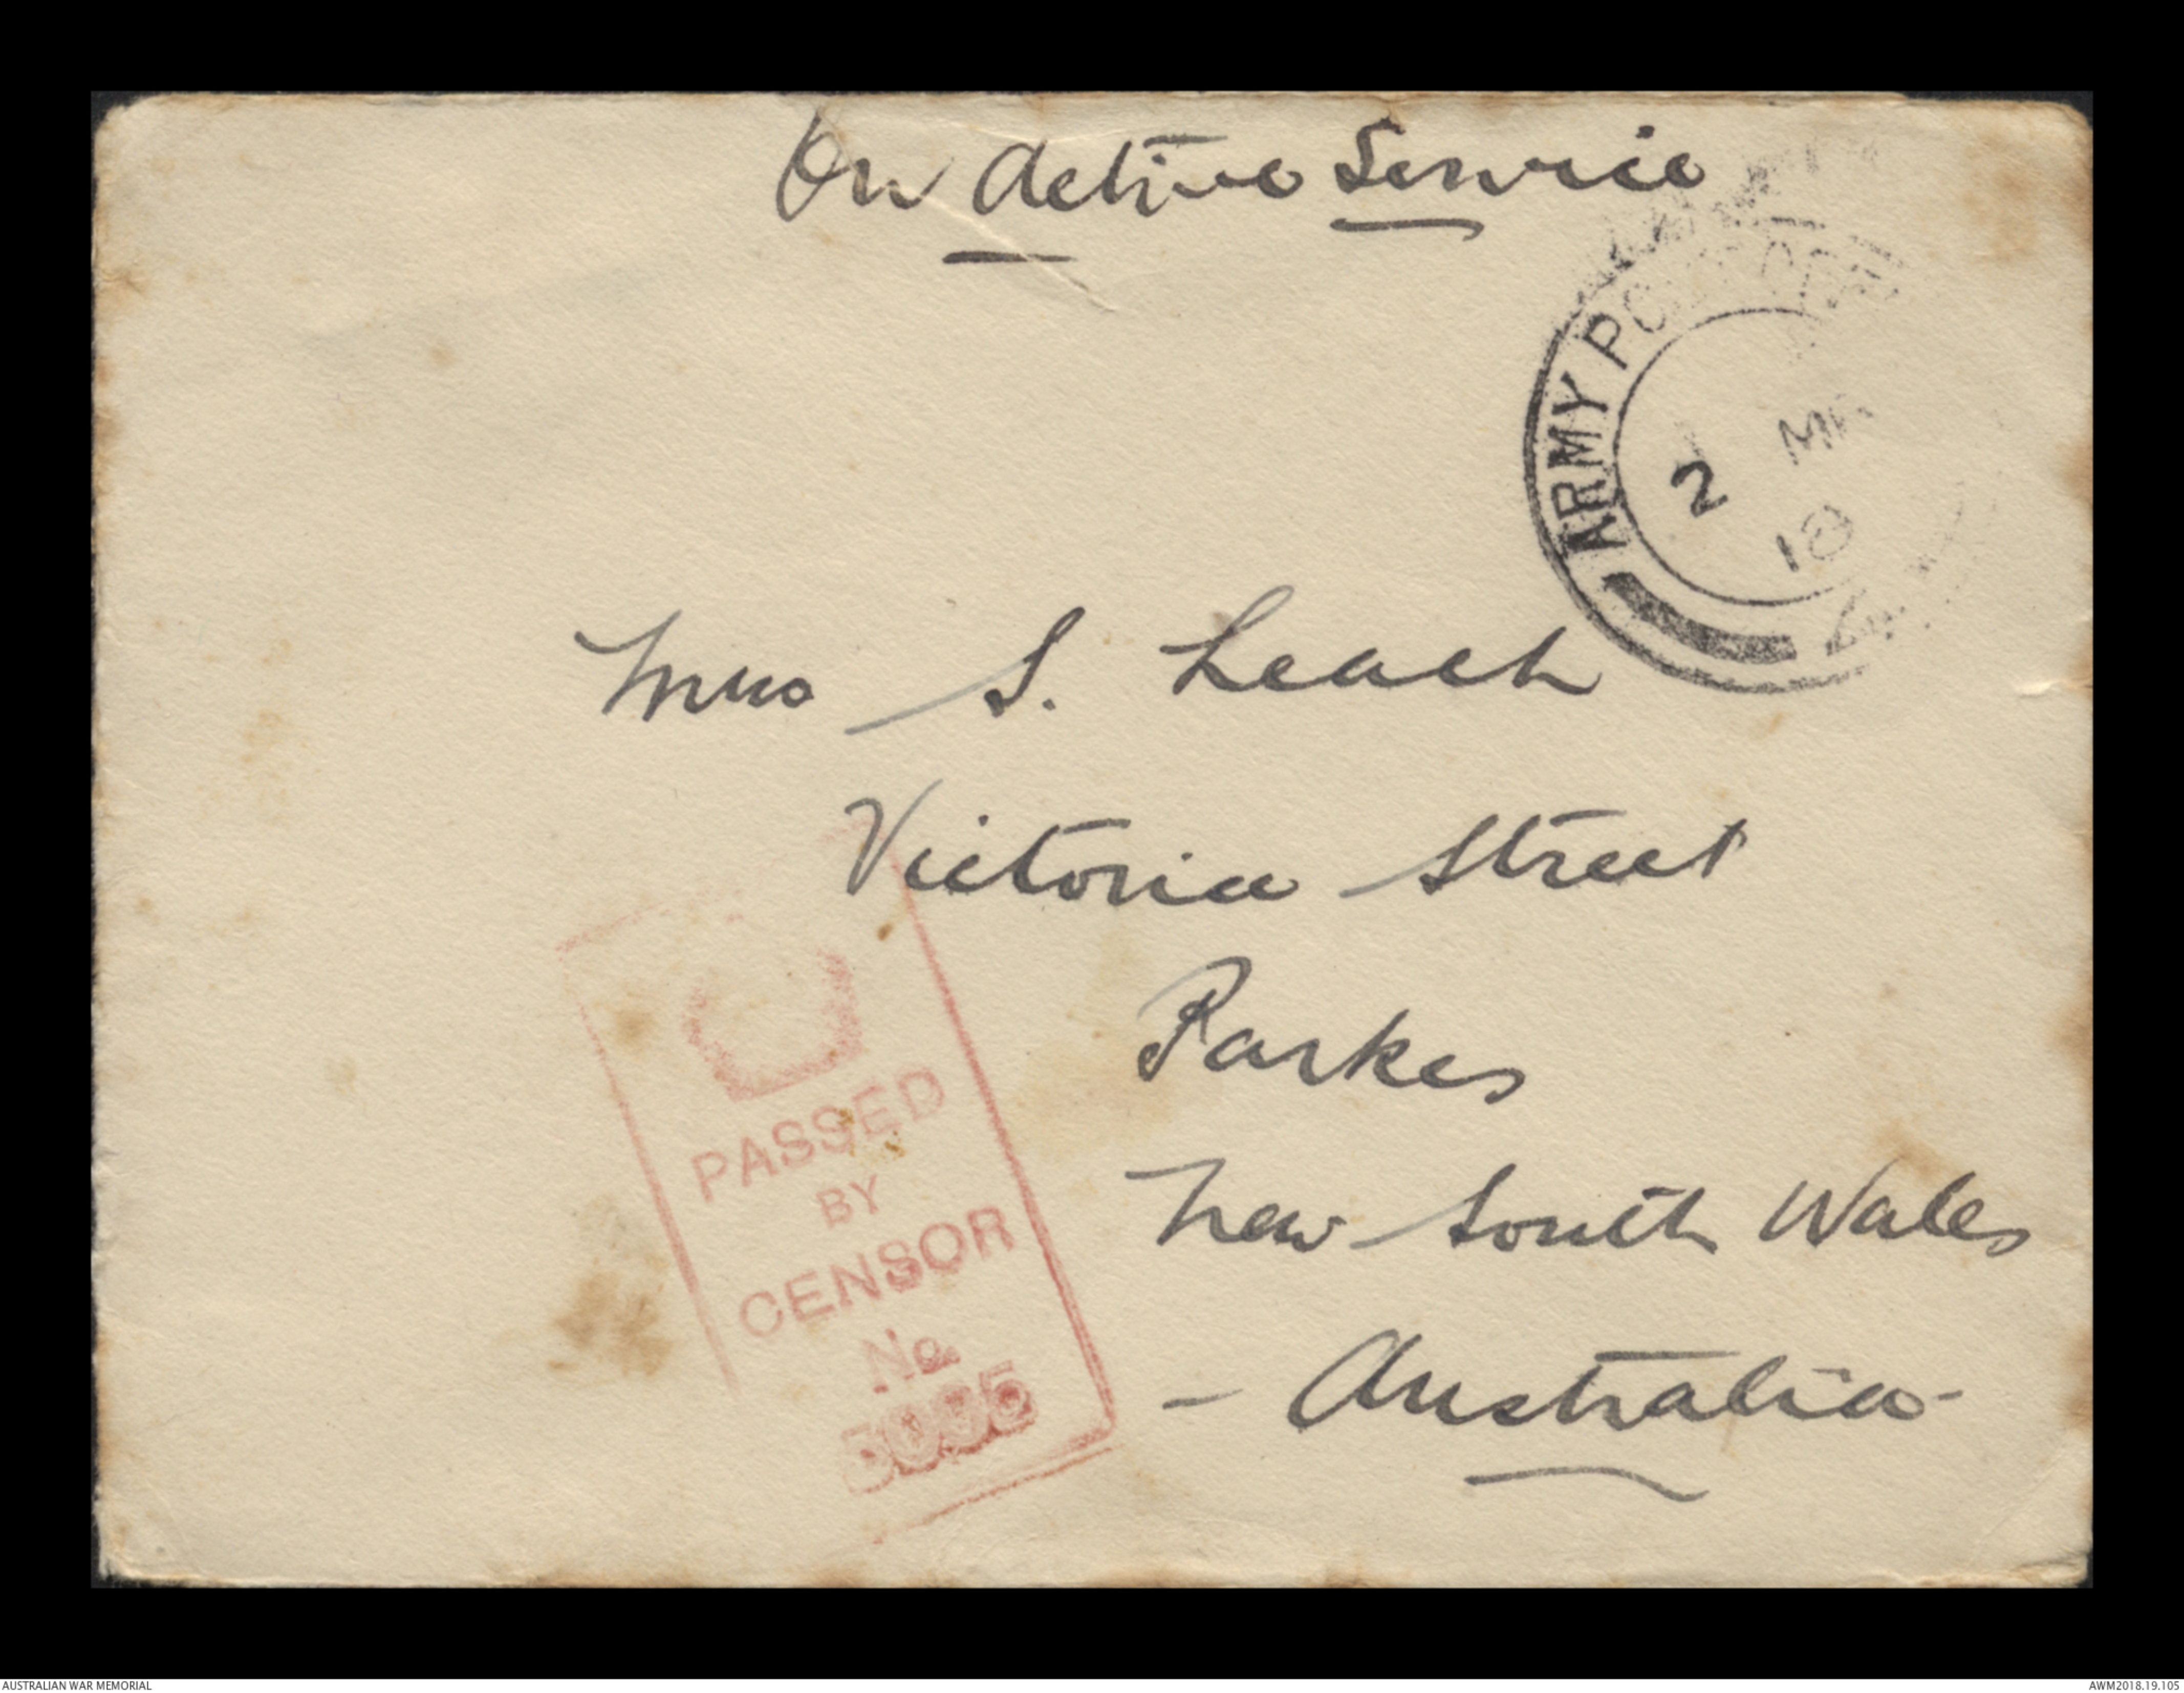 On Active Service
ARMY POST OFFICE
2 MR
18
Mrs S. Leach
Victoria Street
Parkes
New South Wales
- Australia -
PASSED
BY
CENSOR
No.
AUSTRALIAN WAR MEMORIAL
AWM2018.19.105